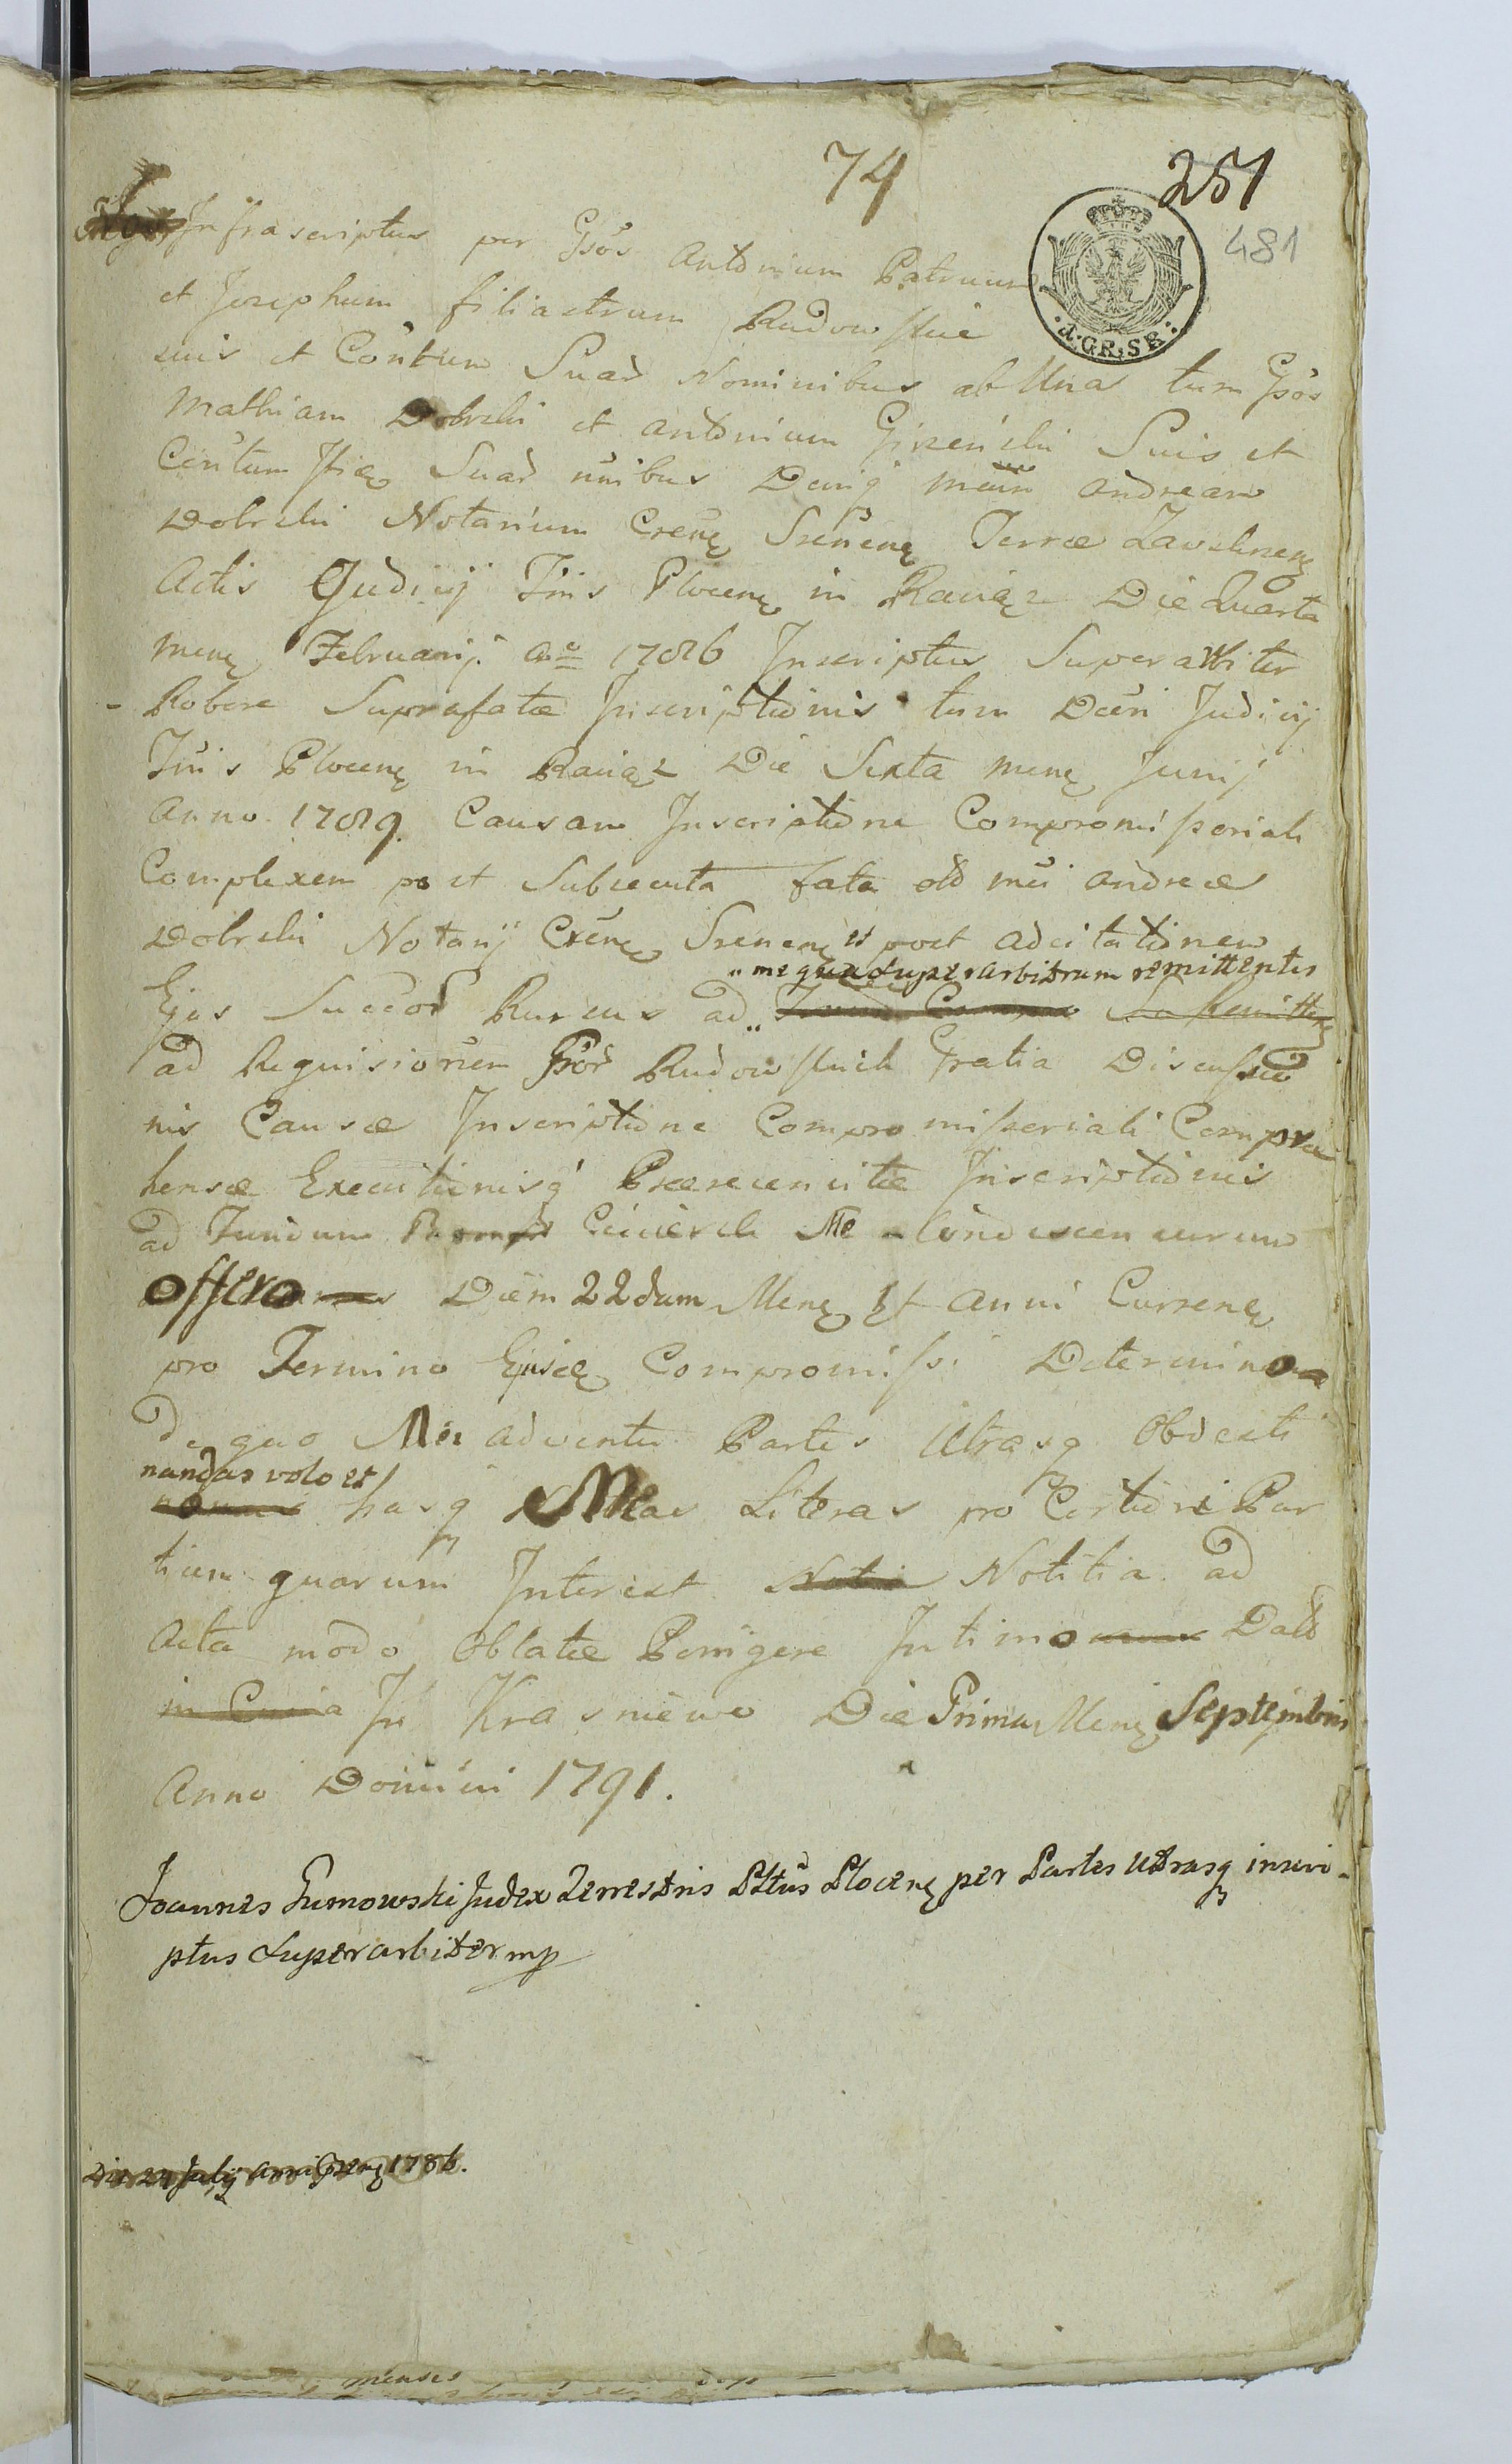 74
251
481
4.GR.SR.
Infrascriptus per Gsos Antonium Patruum
et Josephum filiastrum Rudowskie
suis et Contum Suar Nominibus ab Una tum Gsos
Mathiam Dobrski et Antonium Gizeński Suis et
Contum Suar nnibus Deniq mcum Andream
Dobrski Notarium Crenę Srenenę Terræ Zavskrzenę
Actis Judicij Tris Plocenę in Raciąz Die Quarta
Menę Februarij Ao 1786 Inscriptus Superarbiter
Robore Suprafatæ Inscriptionis tum Dcri Judicij
Tris Plocenę in Raciąz Die Sexta Menę Junij
Anno 1789. Causam Inscriptione Compromissoriali
Complexem post Subsecuta fata olo mci Andreæ
Dobrski Notarij Crenę Srenenę et post adcitationem
me qua Superarbitrum remittentis
Ejus Succor Rursus ad
ad Requisiorem Gsor Rudowskich Gratia Discussio
nis Causæ Inscriptione Compromisseriali Compre
hensæ Executionisq Præresensitæ Inscriptionis
ad Fundum Me Condescensurum
offero Diem 22dum Menę Anni Currenę
pro Termino Ejuscę Compromissi Determino
de quo Mei adventu Partes Utrasq Obdesti
nandas volo et
hasq Meas Literas pro Certiori Par
tium quarum Interest Notitia ad
Acta modo Oblatæ Porrigere Intimo Datt
in Curia In Krasniewo Die Prima Menę Septembris
Anno Domini 1791.
Joannes Gumowski Judex Terrestris Plttus Plocenę per Partes Utrasq inscri-
ptus Superarbiter mp
Die 24 Julij anni 1786.
menses